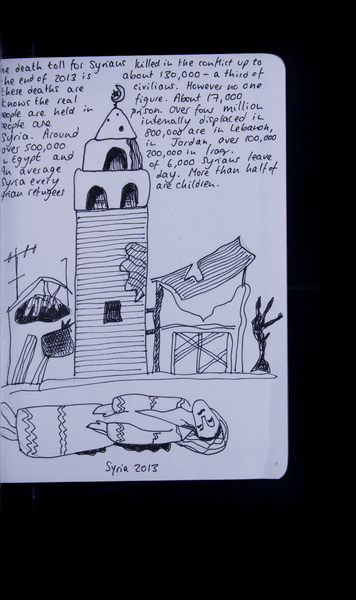 he death toll for Syrians killed in the conflict up to
the end of 2013 is about 130,000 - a third of
these deaths are civilians. However no one
knows the real figure. About 17,000
people are held in prison. Over four million
people are internally displaced in
Syria. Around 800,000 are in Lebanon,
over 500,000 in Jordan, over 100,000
in Egypt and 200,000 in Iraq.
An average of 6,000 Syrians leave
Syria every day. More than half of
rian refugees are children.
Syria 2013